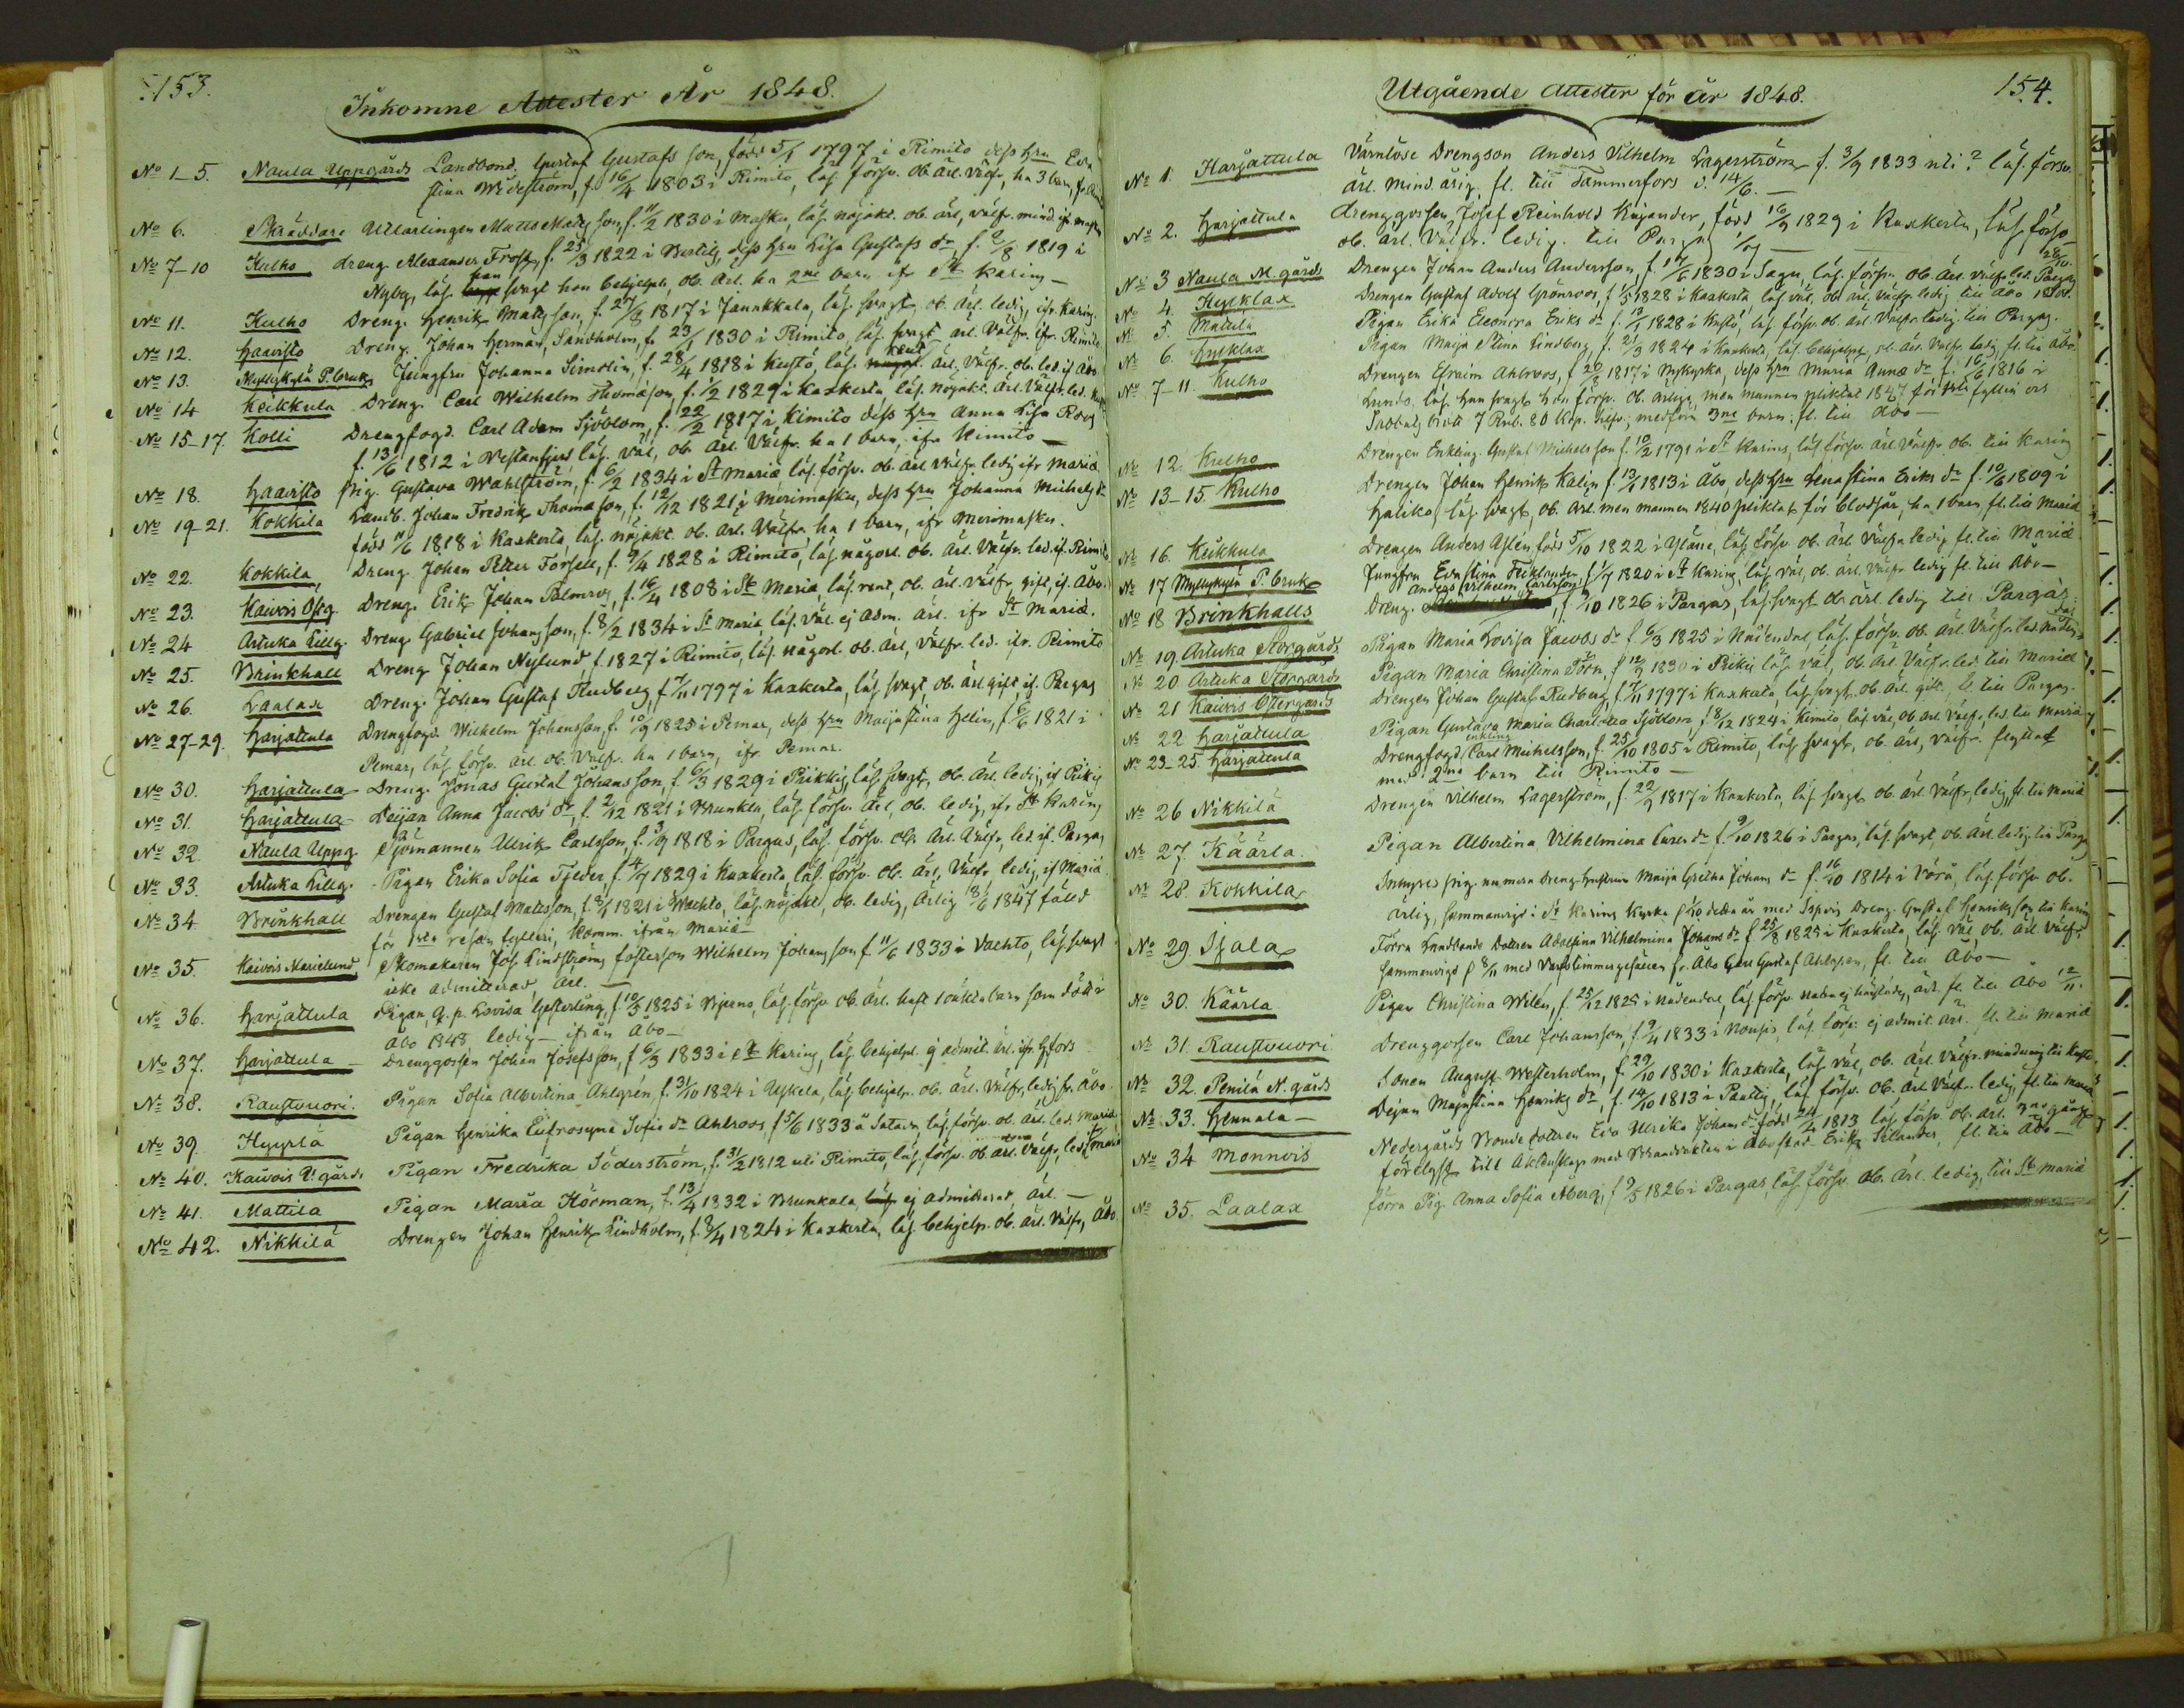 153.
Inkomne Attester År 1848.
No 1-5. Naula Uppgårds Landbond. Gustaf Gustafs son, född 5/1 1797 i Rimito dess hru Eva
Stina Wideström, f. 16/4 1803 i Rimito, läs. försv. ob. ärl. välfr, ha 3 barn,
No 6. Skräddare Utlärlingen Matts Mattsson, f. 11/2 1830 i Masku, läs. nöjakt. ob. ärl, välfr. mind. ifr
No 7-10 Kulho dreng Alexander Frost, f. 25/3 1822 i Vestilä, dess hru Lisa Gustafs dr f. 2/8 1819 i
Nyby, läs. han svagt hon behjelpl, ob. ärl. ha 2ne barn ifr St Karins —
No 11. Kulho Dreng. Henrik Mattsson, f. 27/8 1817 i Janakkala, läs. svagt, ob. ärl. ledig, ifr Karins
No 12. Haavisto Dreng. Johan Herman Sandholm, f. 23/1 1830 i Rimito, läs. svagt ärl. Välfr. ifr. Rimito
No 13. Myllykylä P. bruk Jungfru Johanna Simolin, f. 28/4 1818 i Kustö, läs. rent ärl. Välfr. ob. led. if Åbo
No 14 Keikkula Dreng. Carl Wilhelm Thomasson, f. 1/2 1829 i Kakskerta, läs. nöjakt. ärl. Välfr. led.
No 15-17. Kolli Drengfogd. Carl Adam Sjöblom, f. 22/2 1817 i Kimito dess hru Anna Lisa Roos
f. 13/6 1812 i Westanfjerd läs. väl, ob. ärl. Välfr. ha 1 barn, ifr Kimito —
No 18. Haavisto Pig. Gustava Wahlström, f. 6/2 1834 i St Mariæ läs. försv. ob. ärl välfr. ledig ifr Mariæ.
No 19-21. Kokkila Landb. Johan Fredrik Thomasson, f. 12/12 1821 i Merimasku, dess hru Johanna Michels dr
född 11/6 1818 i Kakskerta, läs. nöjakt. ob. ärl. Välfr. ha 1 barn, ifr Merimasku.
No 22. Kokkila, Dreng Johan Petter Forsell, f. 9/4 1828 i Rimito, läs. någorl. ob. ärl. Välfr. led. if. Rimito
No 23. Kaivois Östg. Dreng. Erik Johan Palmros, f. 16/4 1808 i St Maria, läs. rent, ob. ärl. välfr, gift, if. Åbo.
No 24 Artuka Lillg. Dreng Gabriel Johansson, f. 8/2 1834 i St Maria, läs. väl. ej adm. ärl. ifr St Mariæ.
No 25. Brinkhall Dreng Johan Nylund, f. 1827 i Rimito, läs. någorl. ob. ärl, Välfr. led. ifr. Rimito
No 26. Laalax Dreng. Johan Gustaf Rudberg, f. 7/11 1797 i Kakskerta, läs. svagt, ob. ärl gift, if. Pargas
No 27-29. Harjattula Drengfogd. Wilhelm Johansson, f. 10/9 1825 i Pemar, dess hru Maija Stina Helin, f. 6/6 1821 i
Pemar, läs. försv. ärl. ob. Välfr. ha 1 barn, ifr Pemar.
No 30. Harjattula Dreng. Jonas Gustaf Johansson, f. 6/3 1829 i Pikkis läs. svagt, ob. ärl. ledig, if Pikis
No 31. Harjattula Deijan Anna Jacobs dr, f. 2/12 1821 i Brunkla, läs. försv. ärl, ob. ledig, ifr St Karins
No 32. Naula Uppg. Sjömannen Ulrik Carlsson, f. 3/9 1818 i Pargas, läs. försv. ob. ärl. Välfr, led. if. Pargas
No 33. Artuka Lillg. Pigan Erika Sofia Tjeder, f. 4/7 1829 i Kakskerta läs. försv. ob. ärl, Välfr. ledig, if Mariæ
No 34. Brinkhall Drengen Gustaf Mattsson, f. 8/1 1821 i Wachto, läs. nöjakt, ob. ledig, ärlig 18/6 1847 fäld
för 1sta resan fylleri, komm. ifrån Mariæ —
No 35. Kaivois Marielund Skomakaren Joh. Lindströms fosterson Wilhelm Johansson f. 11/6 1833 i Vachto, läs. svagt
icke admitterad, ärl. —
No 36. Harjattula Pigan, Q. p. Lovisa Gesterling, f. 10/5 1825 i Bjerno, läs. försv. ob. ärl. haft 1 oäkta barn som död i
Åbo 1848, ledig — ifrån Åbo —
No 37. Harjattula Drenggossen Johan Josefsson, f. 6/3 1833 i St Karins, läs. behjelpl. ej admit. ärl. ifr. Hfors
No 38. Raustvuori. Pigan Sofia Albertina Ahlgrén, f. 31/10 1824 i Uskela, läs. behjelp. ob. ärl. Välfr, ledig fr. Åbo
No 39. Hyyrlä Pigan Henrika Eufrosyne Sofia dr Ahlroos, f. 5/6 1833 å Satava, läs. försv. ob. ärl. led. Mariæ
No 40. Kaivois V. gård. Pigan Fredrika Söderström, f. 31/2 1812 uti Rimito, läs. försv. ob. ärl. Välfr, led.
No 41. Mattila Pigan Maria Hörman, f. 13/4 1832 i Brunkala, läs. ej admitterad, ärl. —
No 42. Nikkilä Drengen Johan Henrik Lindholm, f. 8/4 1824 i Kakskerta, läs. behjelp. ob. ärl. Välfr, Åbo.
154.
Utgående Attester för år 1848.
No 1. Harjattula Värnlöse Drengson Anders Vilhelm Lagerström f. 3/9 1833 uti? läs. försv.
ärl. mind. årig. fl. till Tammerfors d. 14/6. —
No 2. Harjattula drenggossen Josef Reinhold Kujander, född 16/9 1829 i Kakskerta, läs försv
ob. ärl. Välfr. ledig. till Pargas
No 3 Naula N. gårds Drengen Johan Anders Andersson, f. 17/6 1830 i Sagu, läs. försv. ob. ärl. välfr. led. Pargas
No 4. Hylklax Drengen Gustaf Adolf Grönroos, f. 1/5 1828 i Kakskerta läs. väl, ob. ärl. Välfr. ledig till Åbo
No 5. Mattila Pigan Erika Eleonora Eriks dr f. 19/1 1828 i Kustö, läs. försv. ob. ärl. Välfr. ledig till Pargas.
No 6. Hylklax Pigan Maija Stina Lindberg, f. 21/3 1824 i Kakskerta, läs. behjelpl, ob. ärl. Välfr. ledig, fl. till Åbo
No 7-11. Kulho Drengen Efraim Ahlroos, f. 20/8 1817 i Nykyrka, dess hru Maria Anna dr f. 16/6 1816 i
Lundo, läs. han svagt hon försv. ob. ärliga, men mannen pliktat 1847 för fylleri och
Sabbatsbrott 7 Rub. 80 kop. silfr., medföra 3ne barn. fl. till Åbo —
No 12. Kulho Drengen Enkling. Gustaf Michelsson f. 10/2 1791 i St Karins, läs. försv. ärl. Välfr. ob. till Karins
No 13-15. Kulho Drengen Johan Henrik Kalin f. 13/1 1813 i Åbo, dess hru Lena Stina Eriks dr f. 10/6 1809 i
Haliko, läs. svagt, ob. ärl. men mannen 1840 pliktat för blodsår, ha 1 barn, fl. till Mariæ
No 16. Keikkula Drengen Anders Aslén, född 5/10 1822 i Yläne, läs. försv. ob. ärl. Välfr. ledig fl. till Mariæ.
No 17 Myllykylä P. bruk Jungfru Eva Stina Ficklander, f. 1/7 1820 i St Karins, läs. väl, ob. ärl. välfr. ledig fl. till Åbo —
No 18 Brinkhalls Dreng. Anders Vilhelm Carlsson, f. 9/10 1826 i Pargas, läs. svagt ob. ärl. ledig till Pargas.
No 19. Artuka Storgårds Pigan Maria Lovisa Jacobs dr f. 6/3 1825 i Nådendal, läs. försv. ob. ärl. Välfr. led. Nådendal
No 20 Artuka Storgårds Pigan Maria Christina Törn, f. 12/9 1830 i Pikis läs. väl, ob. ärl. Välfr. led. till Mariæ
No 21 Kaivois Östergårds Drengen Johan Gustaf Rudberg, f. 7/11 1797 i Kakskerta, läs. svagt. ob. ärl. gift, fl. till Pargas.
No 22 Harjattula Pigan Gustava Maria Charlotta Sjöblom f. 8/12 1824 i Kimito, läs. väl, ob. ärl. Välfr., led. till Maria
No 23-25. Harjattula Drengfogd. enkling Carl Michelsson, f. 25/10 1805 i Rimito, läs. svagt, ob. ärl, välfr. flyttat
med 2ne barn till Rimito —
No 26 Nikkilä Drengen Vilhelm Lagerström, f. 22/9 1817 i Kakskerta, läs. svagt, ob. ärl. Välfr, ledig, fl. till Mariæ
No 27. Käärla Pigan Albertina Vilhelmina Carls dr f. 9/10 1826 i Pargas, läs. svagt, ob. ärl. ledig till Pargas
No 28. Kokkila Inhyses pig. numera dreng hustrun Maija Gretha Johans dr f. 16/10 1814 i Vörå, läs. försv. ob.
ärlig, sammanvigd i St Karins Kyrka 8/10 detta år med Ispois Dreng. Gustaf Henriksson till Karins
No 29. Sjala Förra Landbonde dottren Adolfina Vilhelmina Johans dr f. 25/8 1825 i Kakskerta, läs. väl ob. ärl. Välfr,
sammanvigd 8/11 med Varfstimmergesällen fr. Åbo Carl Gustaf Ahlgren, fl. till Åbo —
No 30. Käärla Pigan Christina Wilén, f. 25/12 1825 i Nådendal, läs. försv. ärl. fl. till Åbo 12/11.
No 31. Raustvuori Drenggossen Carl Johansson, f. 9/4 1833 i Nousis, läs. försv. ej admit. ärl. fl. till Mariæ
No 32. Penilä N. gårds Sonen August Westerholm, f. 29/10 1830 i Kakskerta, läs. väl, ob. ärl. Välfr. minderårig till
No 33. Hennala — Dejan Maja Stina Henriks dr, f. 14/10 1813 i Pautis, läs. försv. ob. ärl Välfr. ledig, fl. till Mariæ
No 34 Monnois Nedergårds Bonde dottren Eva Ulrika Johans dr född 24/4 1813 läs. försv. ob. ärl. 3ne gånger
förelyst till Äktenskap med Brandvakten i Åbo stad Erik Selander, fl. till Åbo —
No 35. Laalax förra Pig. Anna Sofia Åberg, f. 9/5 1826 i Pargas, läs. försv. ob. ärl. ledig, till St Mariæ